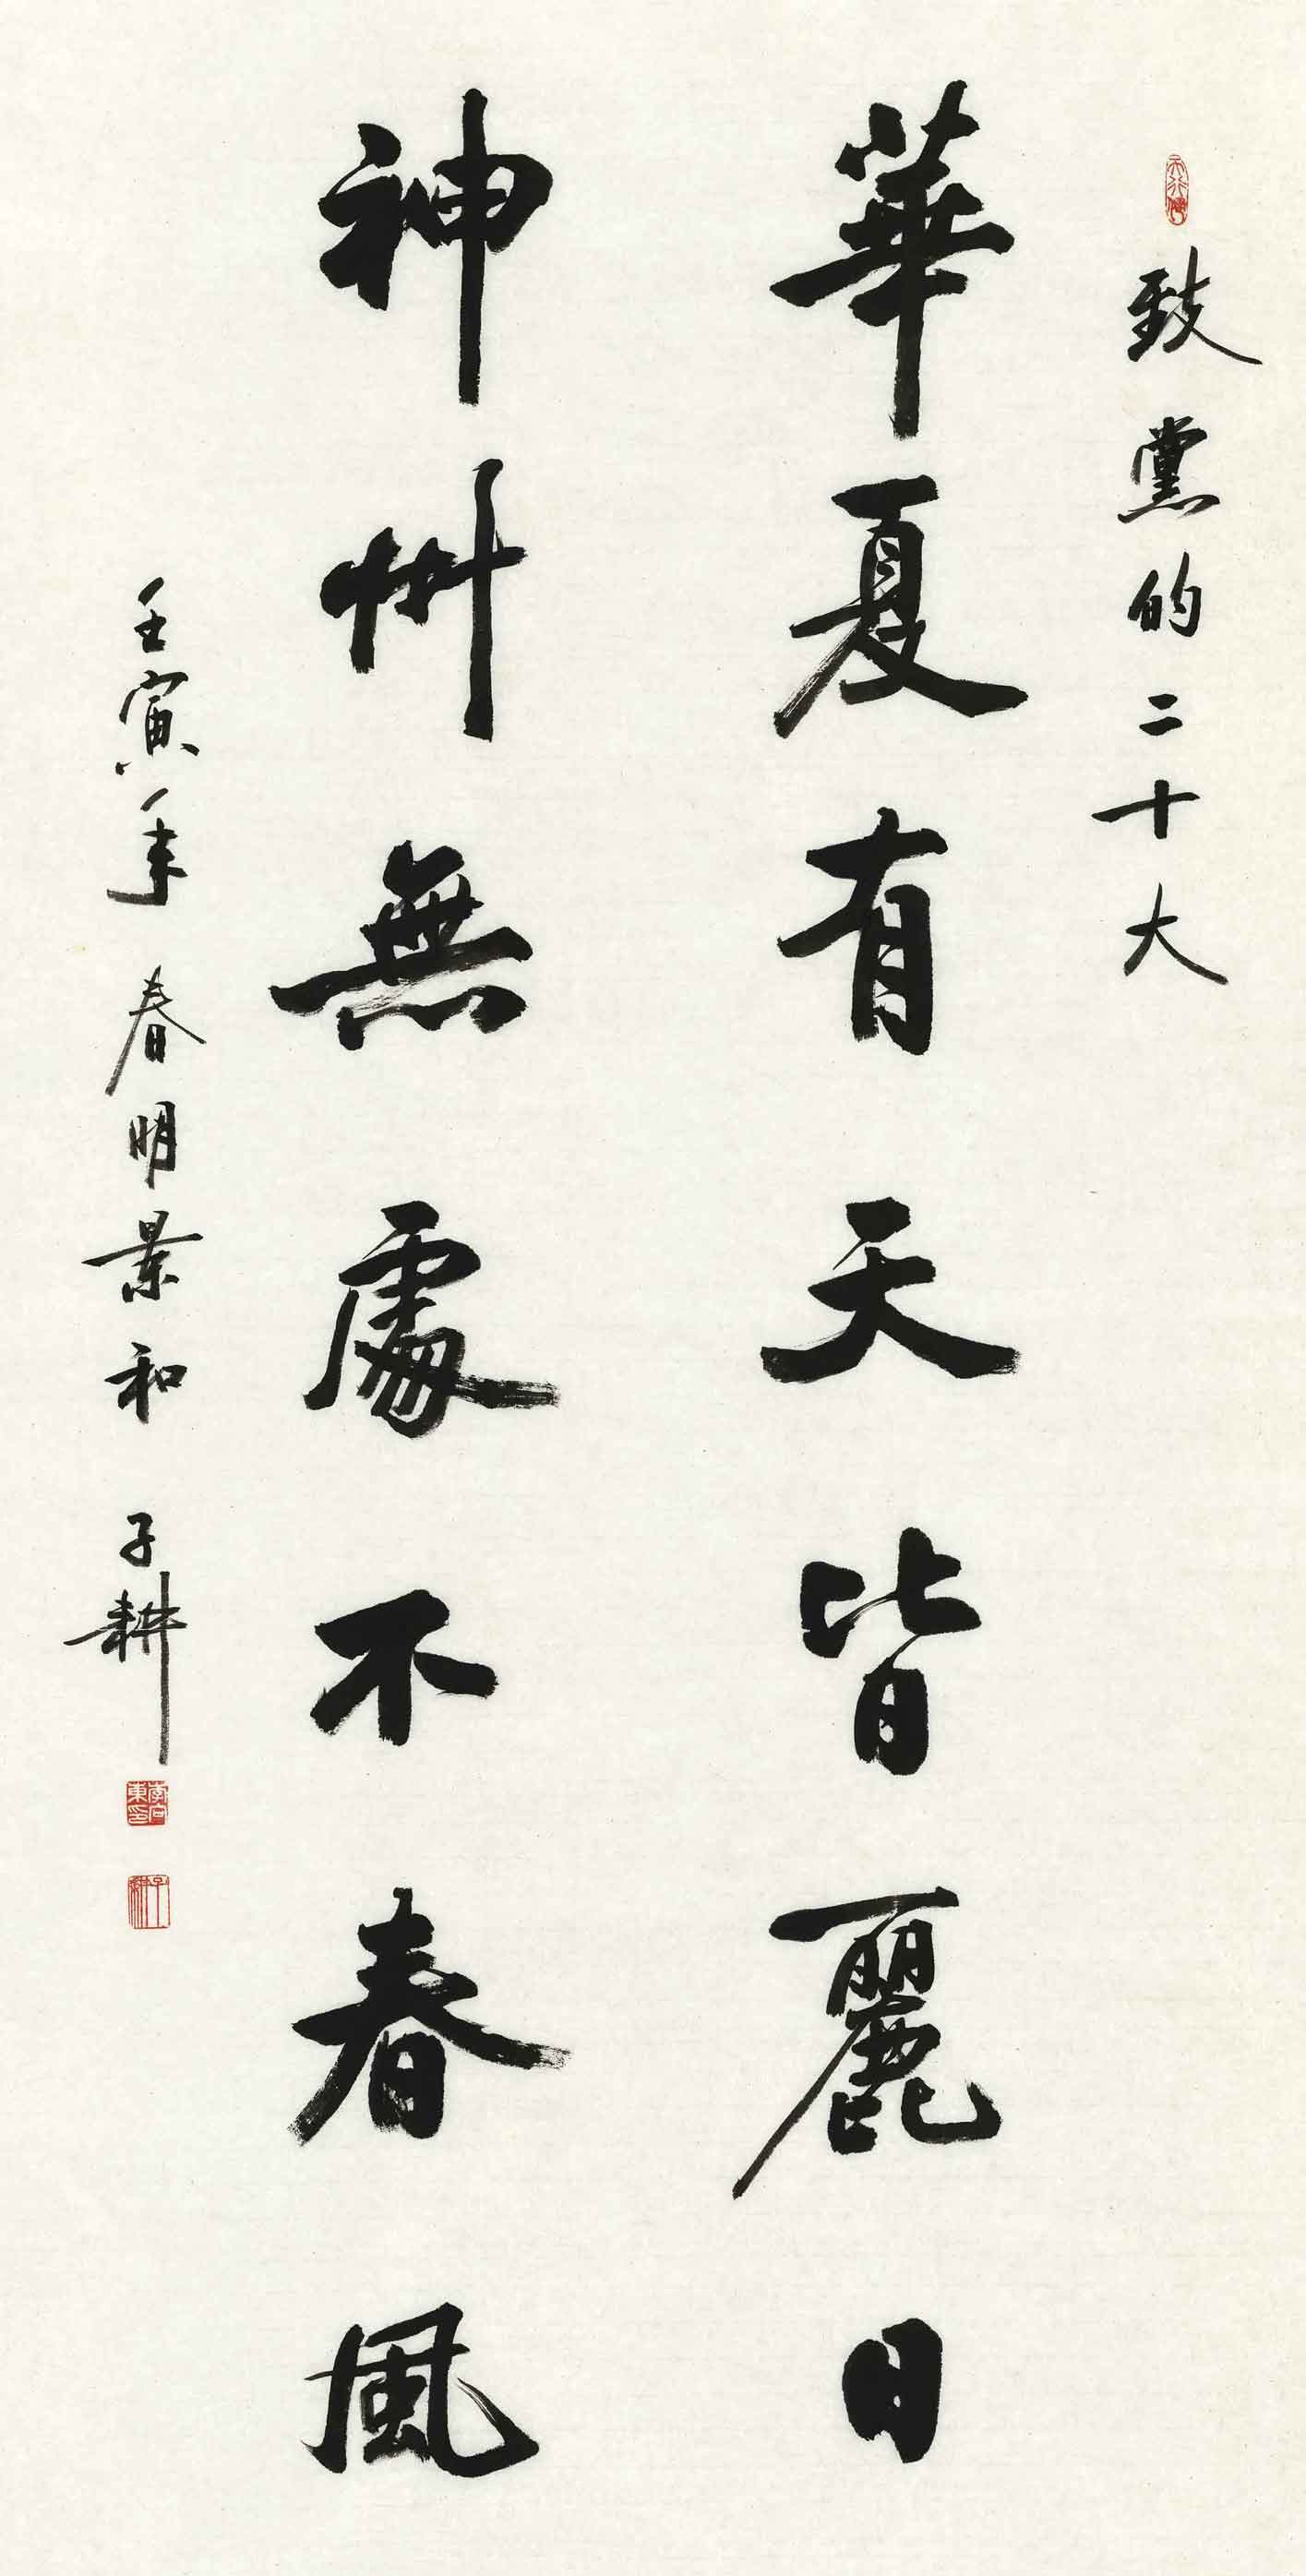 致黨的二十大
華夏有天皆麗日
神州無處不春風
壬寅年 春明景和 子耕
李向東印
子耕